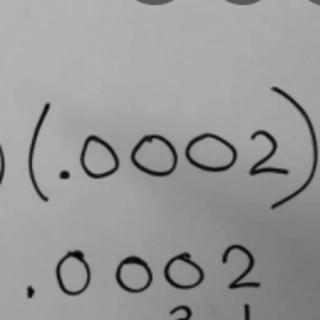 )(.0002)
.0002